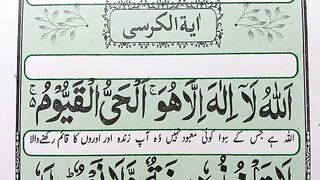 اٰیة الکرسی
اَللّٰهُ لَاۤ اِلٰهَ اِلَّا هُوَ ۚ اَلْحَیُّ الْقَیُّوْمُ ۚ۬
اللہ ہے جس کے سوا کوئی معبود نہیں وہ آپ زندہ اور اوروں کا قائم رکھنے والا